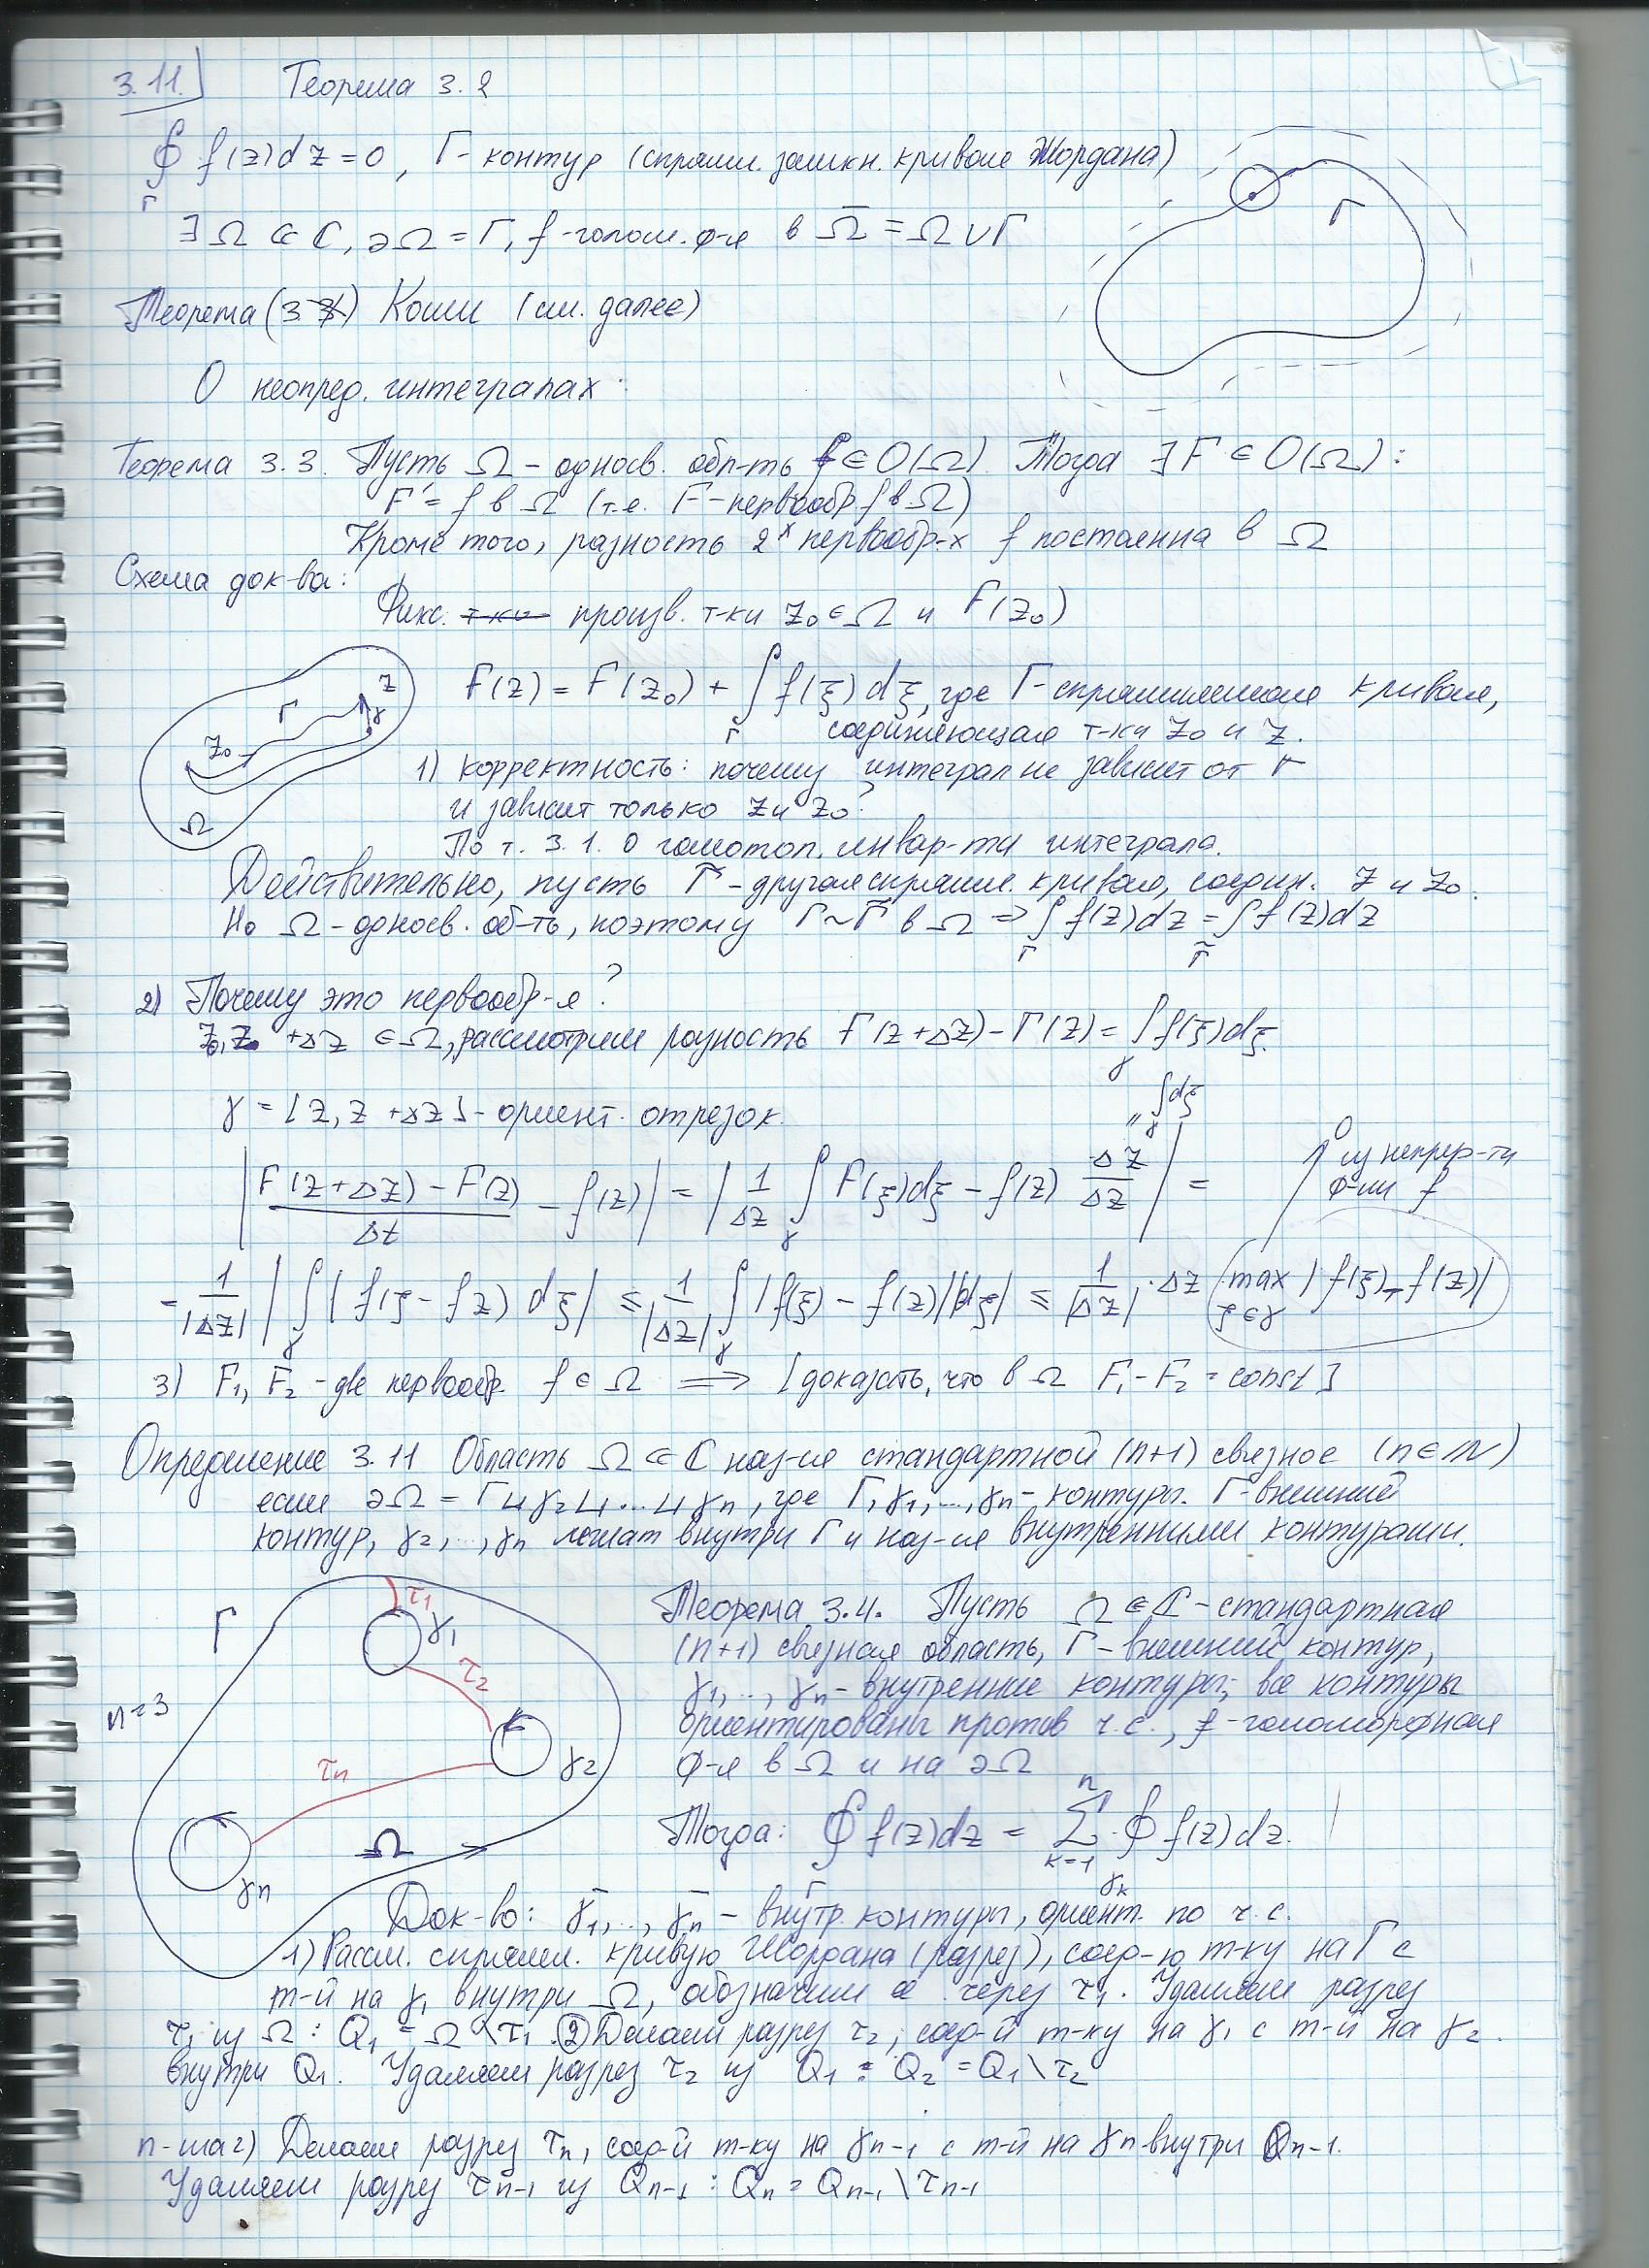 3.11. Теорема 3.2
∮_Γ f(z)dz = 0, Γ-контур (спрямл. замкн. кривая Жордана)
∃ Ω ⊂ ℂ, ∂Ω = Γ, f-голом. ф-я в Ω̄ = Ω ∪ Γ
Γ
Теорема (3.3) Коши (см. далее)
О неопред. интегралах:
Теорема 3.3. Пусть Ω - односв. обл-ть f ∈ O(Ω). Тогда ∃ F ∈ O(Ω):
F' = f в Ω (т.е. F-первообр. f в Ω)
Кроме того, разность 2х первообр-х f постоянна в Ω
Схема док-ва:
Фикс. произв. т-ки z₀ ∈ Ω и F(z₀)
F(z) = F(z₀) + ∫_Γ f(ξ)dξ, где Γ-спрямляемая кривая,
соединяющая т-ки z₀ и z.
Γ z γ z₀ Ω
1) корректность: почему интеграл не зависит от Γ
и зависит только z и z₀?
По т. 3.1. О гомотоп. инвар-ти интеграла.
Действительно, пусть Γ̃ - другая спрямл. кривая, соедин. z и z₀.
Но Ω - односв. об-ть, поэтому Γ ~ Γ̃ в Ω ⇒ ∫_Γ f(z)dz = ∫_Γ̃ f(z)dz
2) Почему это первообр-я?
z₀, z + Δz ∈ Ω, рассмотрим разность F(z+Δz) - F(z) = ∫_γ f(ξ)dξ.
γ = [z, z+Δz] - ориент. отрезок.
∫_γ dξ
| (F(z+Δz) - F(z))/Δt - f(z) | = | 1/Δz ∫_γ F(ξ)dξ - f(z) Δz/Δz | =
0 из непрер-ти ф-ии f
= 1/|Δz| | ∫_γ (f(ξ - fz) dξ | ≤ 1/|Δz| ∫_γ |f(ξ) - f(z)||dξ| ≤ 1/|Δz| · Δz max_{ξ∈γ} |f(ξ) - f(z)|
3) F₁, F₂ - две первообр. f ∈ Ω ⟹ [доказать, что в Ω F₁ - F₂ = const]
Определение 3.11 Область Ω ⊂ ℂ наз-ся стандартной (n+1) связное (n ∈ ℕ)
если ∂Ω = Γ ⊔ γ₂ ⊔ ... ⊔ γn, где Γ, γ₁, ..., γn - контуры. Γ-внешний
контур, γ₂, ..., γn лежат внутри Γ и наз-ся внутренними контурами.
Γ τ₁ γ₁ τ₂ n=3 γ₂ τn Ω γn
Теорема 3.4. Пусть Ω ∈ ℂ - стандартная
(n+1) связная область, Γ-внешний контур,
γ₁, ..., γn - внутренние контуры; все контуры
ориентированы против ч.с., f-голоморфная
ф-я в Ω и на ∂Ω
Тогда: ∮_Γ f(z)dz = Σ_{k=1}^{n} ∮_{γk} f(z)dz.
Док-во: γ₁⁻, ..., γn⁻ - внутр. контуры, ориент. по ч.с.
1) Рассм. спрямл. кривую Жордана (разрез), соед-ю т-ку на Γ с
т-й на γ₁ внутри Ω, обозначим её через τ₁. Удаляем разрез
τ₁ из Ω : Q₁ = Ω \ τ₁. 2) Делаем разрез τ₂, соед-й т-ку на γ₁ с т-й на γ₂
внутри Q₁. Удаляем разрез τ₂ из Q₁ : Q₂ = Q₁ \ τ₂
n-шаг) Делаем разрез τn, соед-й т-ку на γn-1 с т-й на γn внутри Qn-1.
Удаляем разрез τn-1 из Qn-1 : Qn = Qn-1 \ τn-1